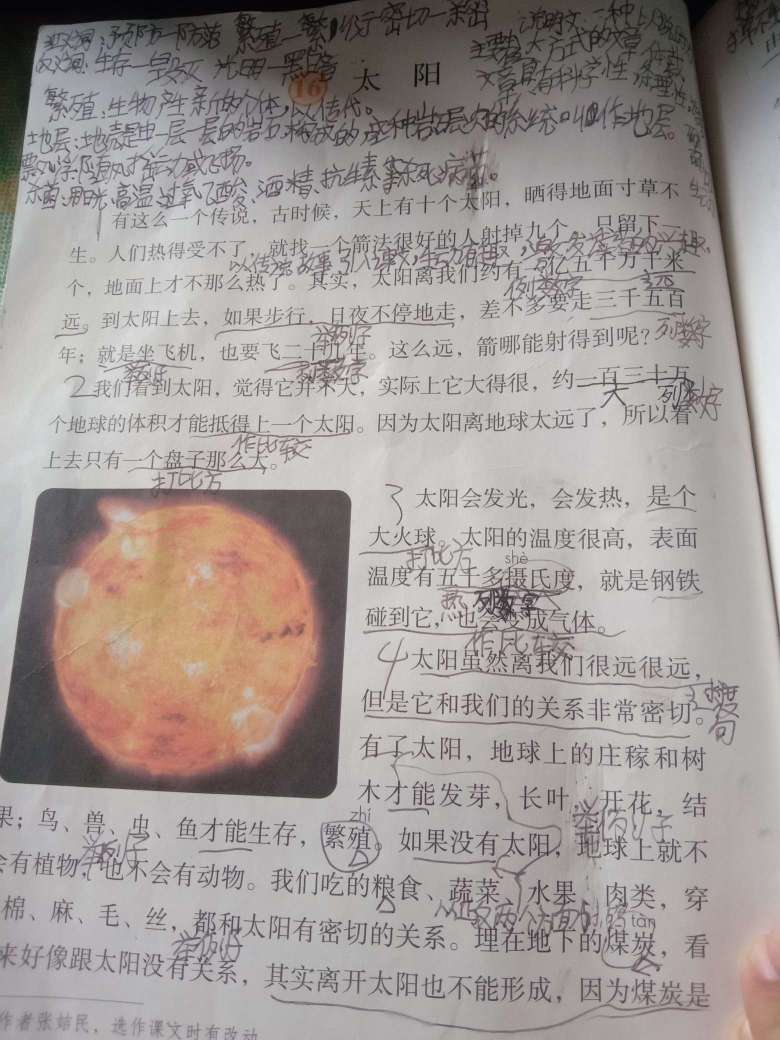 近义词：预防—防范 繁殖—繁 密切—亲密
反义词：生存—毁灭 光明—黑暗
繁殖：生物产生新的个体，以传代。
地层：地壳是由一层一层的岩石构成的，这种岩层的系统叫作地层。
杀菌：用阳光、高温、过氧乙酸、酒精、抗生素等杀死病菌。
说明文：
文章具有科学性，条理性，
16 太阳
有这么一个传说，古时候，天上有十个太阳，晒得地面寸草不
生。人们热得受不了，就找一个箭法很好的人射掉九个，只留下一
以传说故事引入课文，生动有趣，
个，地面上才不那么热了。其实，太阳离我们约有一亿五千万千米
列数字
远
远。到太阳上去，如果步行，日夜不停地走，差不多要走三千五百
举例子
列数字
年；就是坐飞机，也要飞二十几年。这么远，箭哪能射得到呢？
列数字
2 我们看到太阳，觉得它并不大，实际上它大得很，约一百三十万
大
列数字
个地球的体积才能抵得上一个太阳。因为太阳离地球太远了，所以看
作比较
上去只有一个盘子那么大。
打比方
3 太阳会发光，会发热，是个
大火球。太阳的温度很高，表面
打比方
shè
温度有五千多摄氏度，就是钢铁
热 列数字
碰到它，也会变成气体。
作比较
4 太阳虽然离我们很远很远，
但是它和我们的关系非常密切。
有了太阳，地球上的庄稼和树
木才能发芽，长叶，开花，结
zhí
果；鸟、兽、虫、鱼才能生存，繁殖。如果没有太阳，地球上就不
举例子
举例子
会有植物，也不会有动物。我们吃的粮食、蔬菜、水果、肉类，穿
tàn
棉、麻、毛、丝，都和太阳有密切的关系。埋在地下的煤炭，看
举例子
来好像跟太阳没有关系，其实离开太阳也不能形成，因为煤炭是
作者张姞民，选作课文时有改动